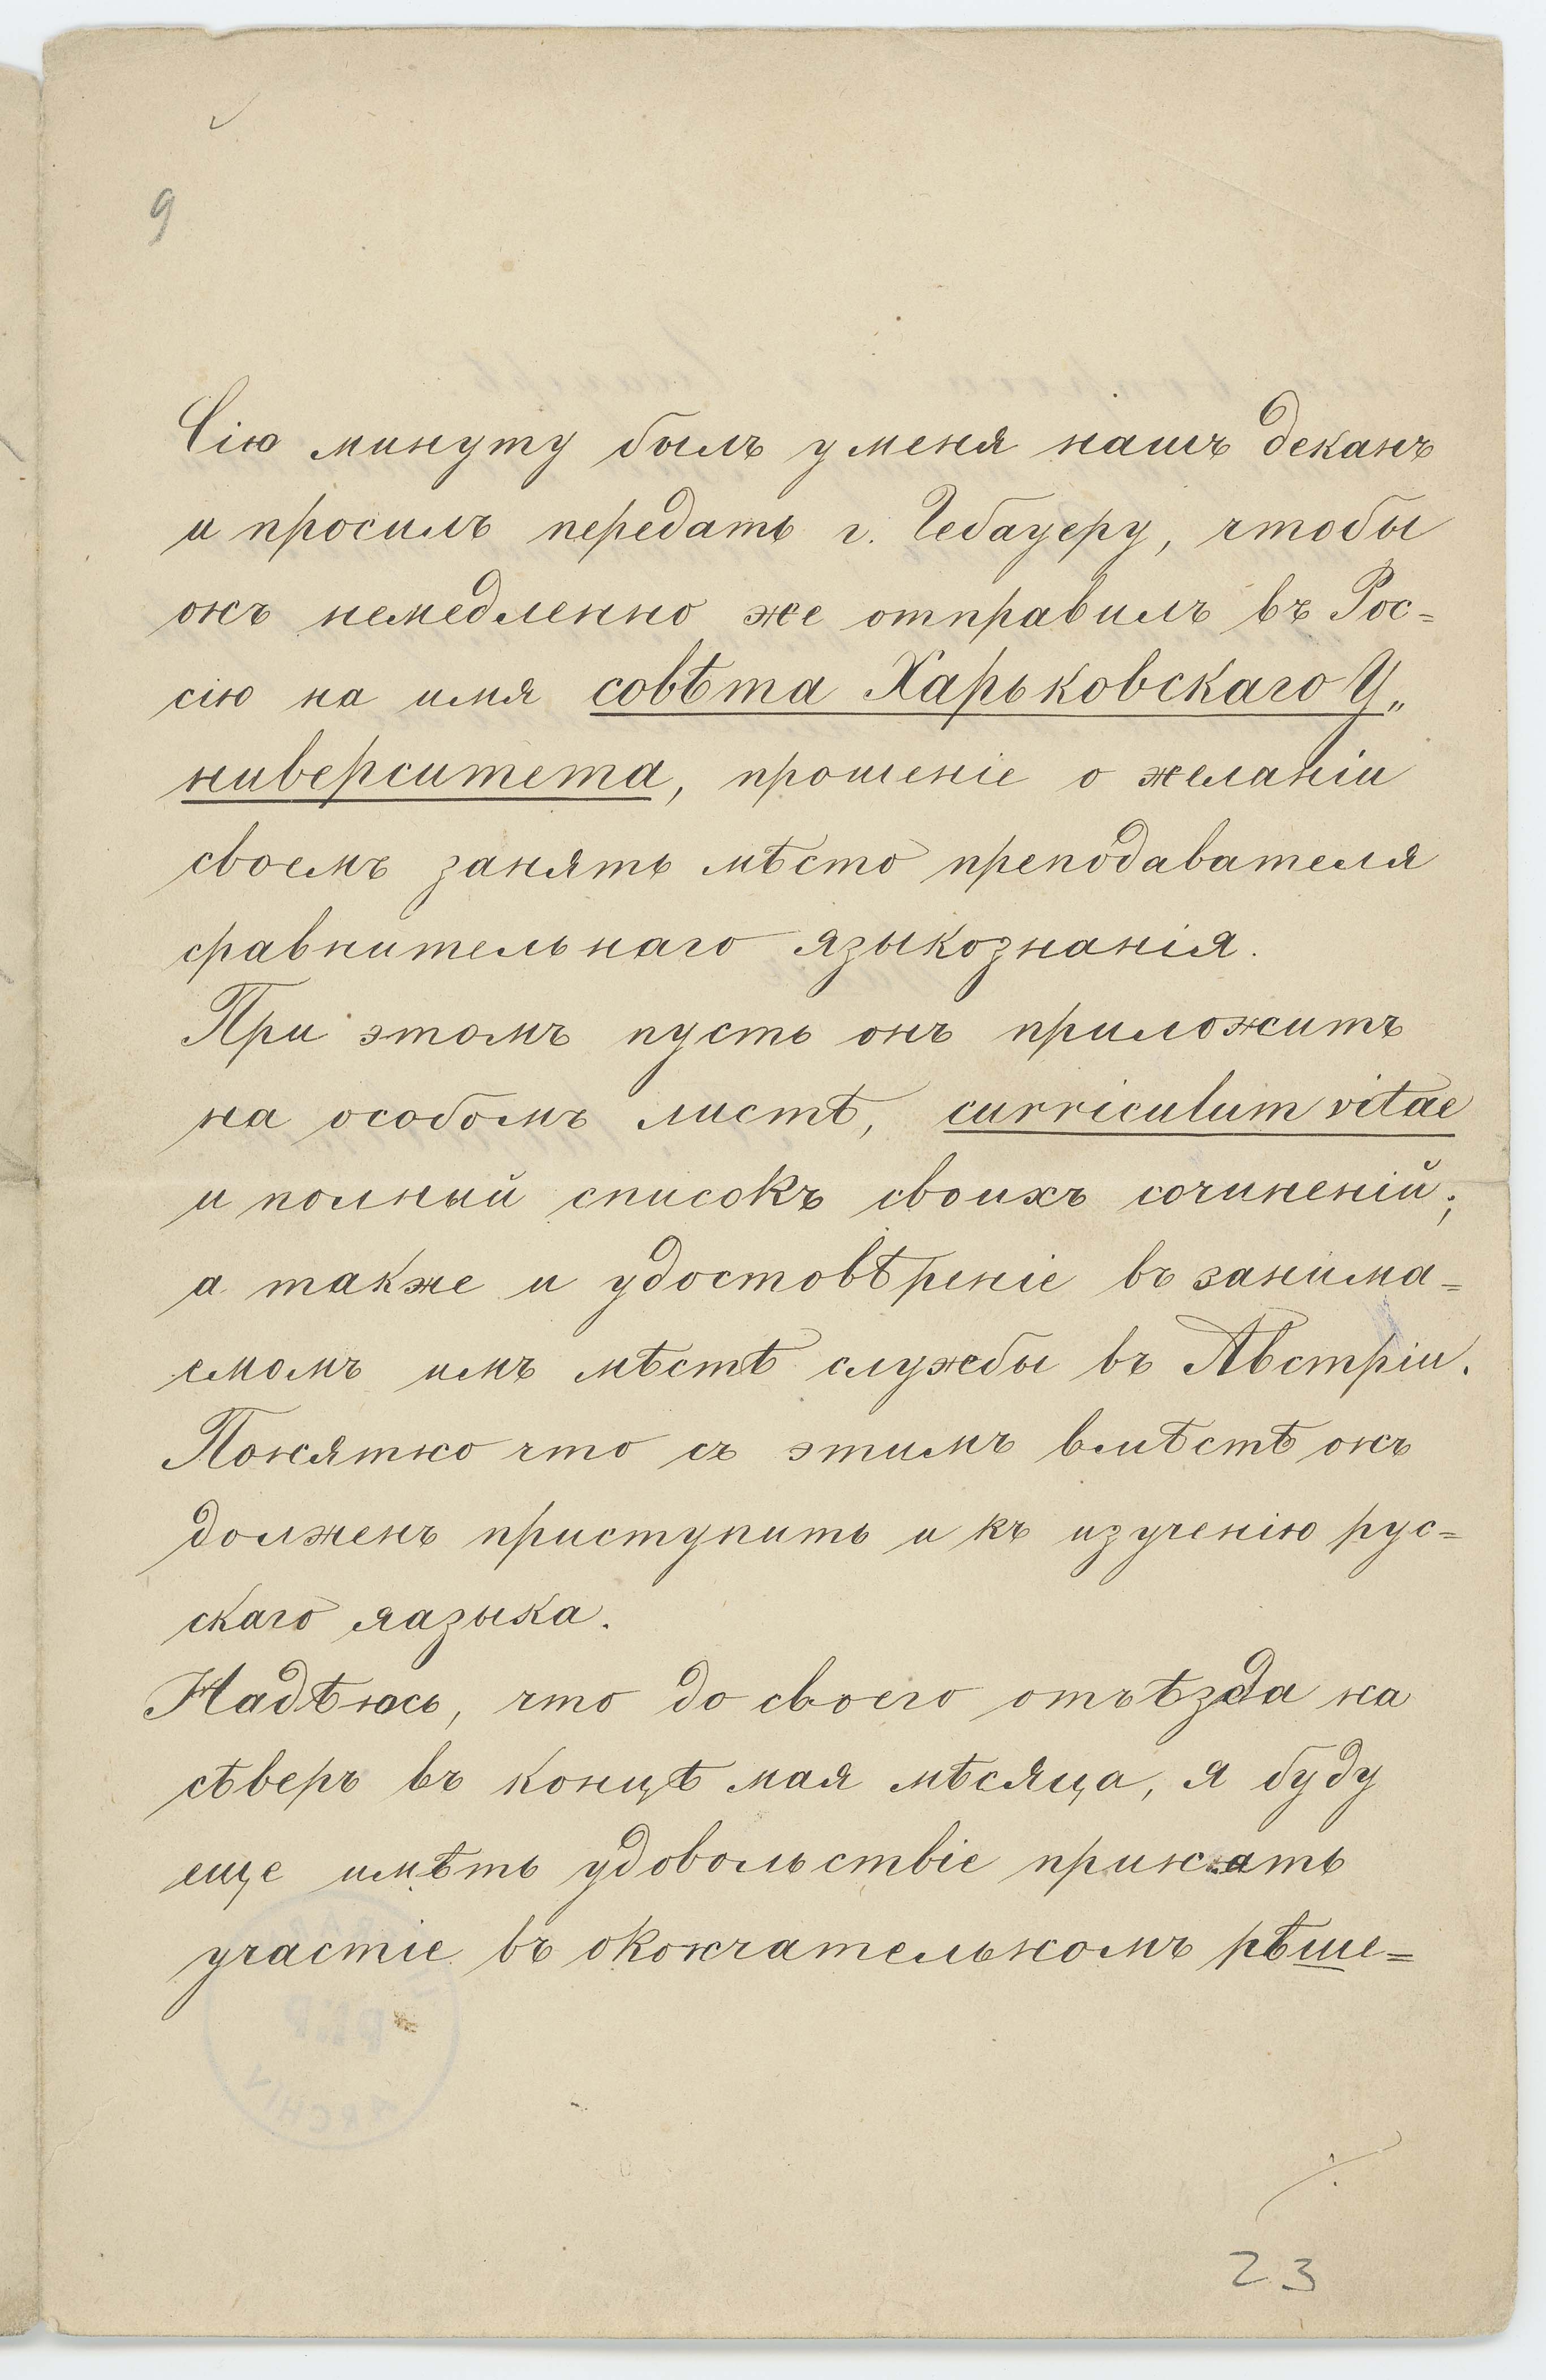 9
Сію минуту былъ у меня нашъ деканъ
и просилъ передать г. Гебауеру, чтобы
онъ немедленно же отправилъ въ Рос=
сію на имя совѣта Харьковскаго У„
ниверситета, прошеніе о желаніи
своемъ занять мѣсто преподавателя
сравнительнаго языкознанія.
При этомъ пусть онъ приложитъ
на особомъ листѣ, curriculum vitae
и полный списокъ своихъ сочиненій;
а также и удостовѣреніе въ занима=
емомъ имъ мѣстѣ службы въ Австріи.
Понятно что съ этимъ вмѣстѣ онъ
долженъ приступить и къ изученію рус=
скаго яазыка.
Надѣюсь, что до своего отъѣзда на
сѣверъ въ концѣ мая мѣсяца, я буду
еще имѣть удовольствіе принать
участіе въ окончательномъ рѣше=
23